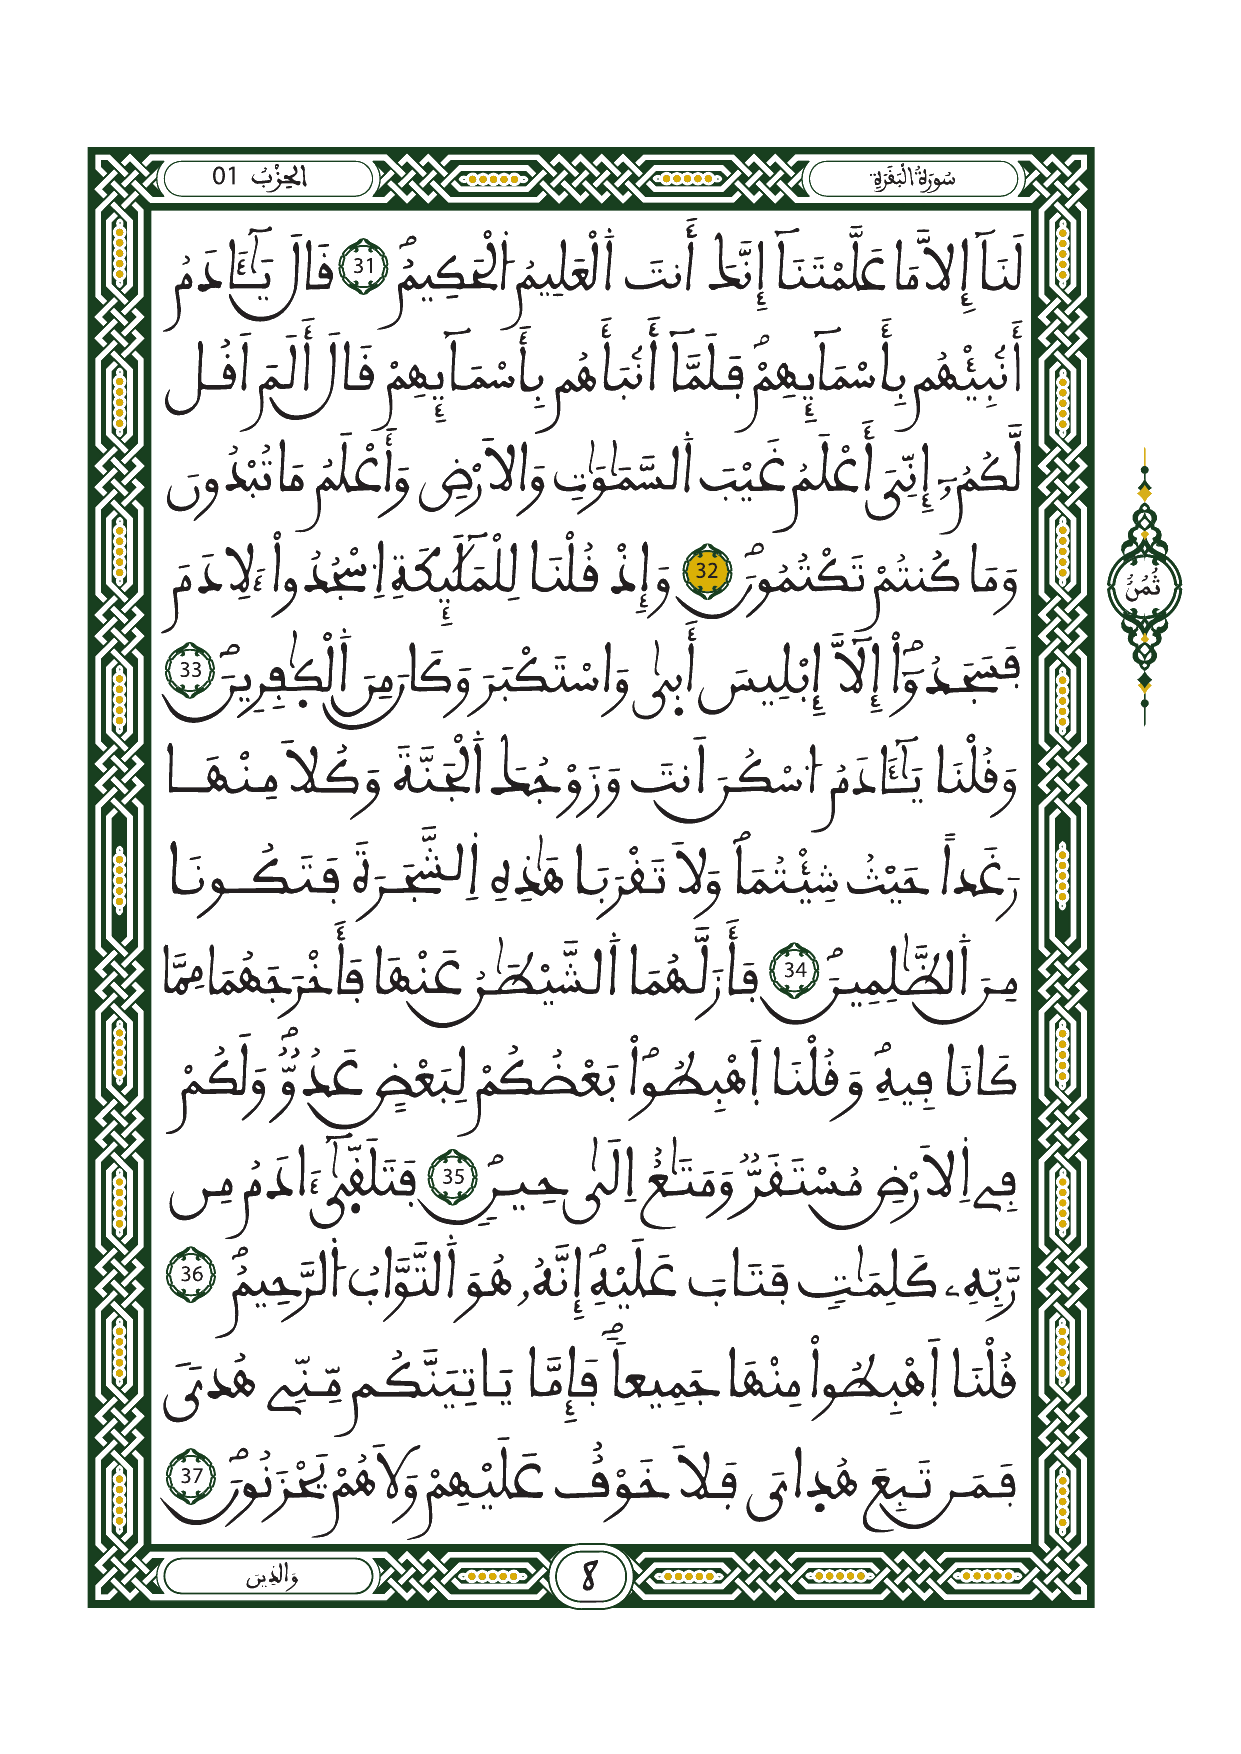 سُورَةُ الْبَقَرَةِ
الحِزْبُ 01
لَنَآ إِلاَّ مَا عَلَّمْتَنَآ إِنَّكَ أَنتَ اَ۬لْعَلِيمُ اُ۬لْحَكِيمُۖ 31 قَالَ يَـَٰٓـَٔادَمُ
أَنۢبِئْهُم بِأَسْمَآئِهِمْۖ فَلَمَّآ أَنۢبَأَهُم بِأَسْمَآئِهِمْ قَالَ أَلَمَ اَقُل
لَّكُمُۥٓ إِنِّىَ أَعْلَمُ غَيْبَ اَ۬لسَّمَٰوَٰتِ وَالَارْضِ وَأَعْلَمُ مَا تُبْدُونَ
وَمَا كُنتُمْ تَكْتُمُونَۖ 32 وَإِذْ قُلْنَا لِلْمَلَٰٓئِكَةِ اِ۟سْجُدُواْ ءَلِادَمَ
فَسَجَدُوٓاْۖ إِلَّآ إِبْلِيسَ أَبىٰ وَاسْتَكْبَرَ وَكَانَ مِنَ اَ۬لْكٰفِرِينَۖ 33
وَقُلْنَا يَـَٰٓـَٔادَمُ اُ۟سْكُنَ اَنتَ وَزَوْجُكَ اَ۬لْجَنَّةَ وَكُلاَ مِنْهَا
رَغَداً حَيْثُ شِئْتُمَاۖ وَلاَ تَقْرَبَا هَٰذِهِ اِ۬لشَّجَرَةَ فَتَكُونَا
مِنَ اَ۬لظَّٰلِمِينَۖ 34 فَأَزَلَّهُمَا اَ۬لشَّيْطَٰنُ عَنْهَا فَأَخْرَجَهُمَا مِمَّا
كَانَا فِيهِۖ وَقُلْنَا اَ۪هْبِطُواْۖ بَعْضُكُمْ لِبَعْضٍ عَدُوࣱّۖ وَلَكُمْ
فِے اِ۬لَارْضِ مُسْتَقَرࣱّ وَمَتَٰعٌ اِلَىٰ حِينࣲۖ 35 فَتَلَقّىٰٓ ءَادَمُ مِن
رَّبِّهِۦ كَلِمَٰتٍ فَتَابَ عَلَيْهِۖ إِنَّهُۥ هُوَ اَ۬لتَّوَّابُ اُ۬لرَّحِيمُۖ 36
قُلْنَا اَ۪هْبِطُواْ مِنْهَا جَمِيعاًۖ فَإِمَّا يَاتِيَنَّكُم مِّنِّے هُدىً
فَمَن تَبِعَ هُد۪اىَ فَلاَ خَوْفٌ عَلَيْهِمْ وَلاَ هُمْ يَحْزَنُونَۖ 37
ثُمُنُ
وَالذِين
8